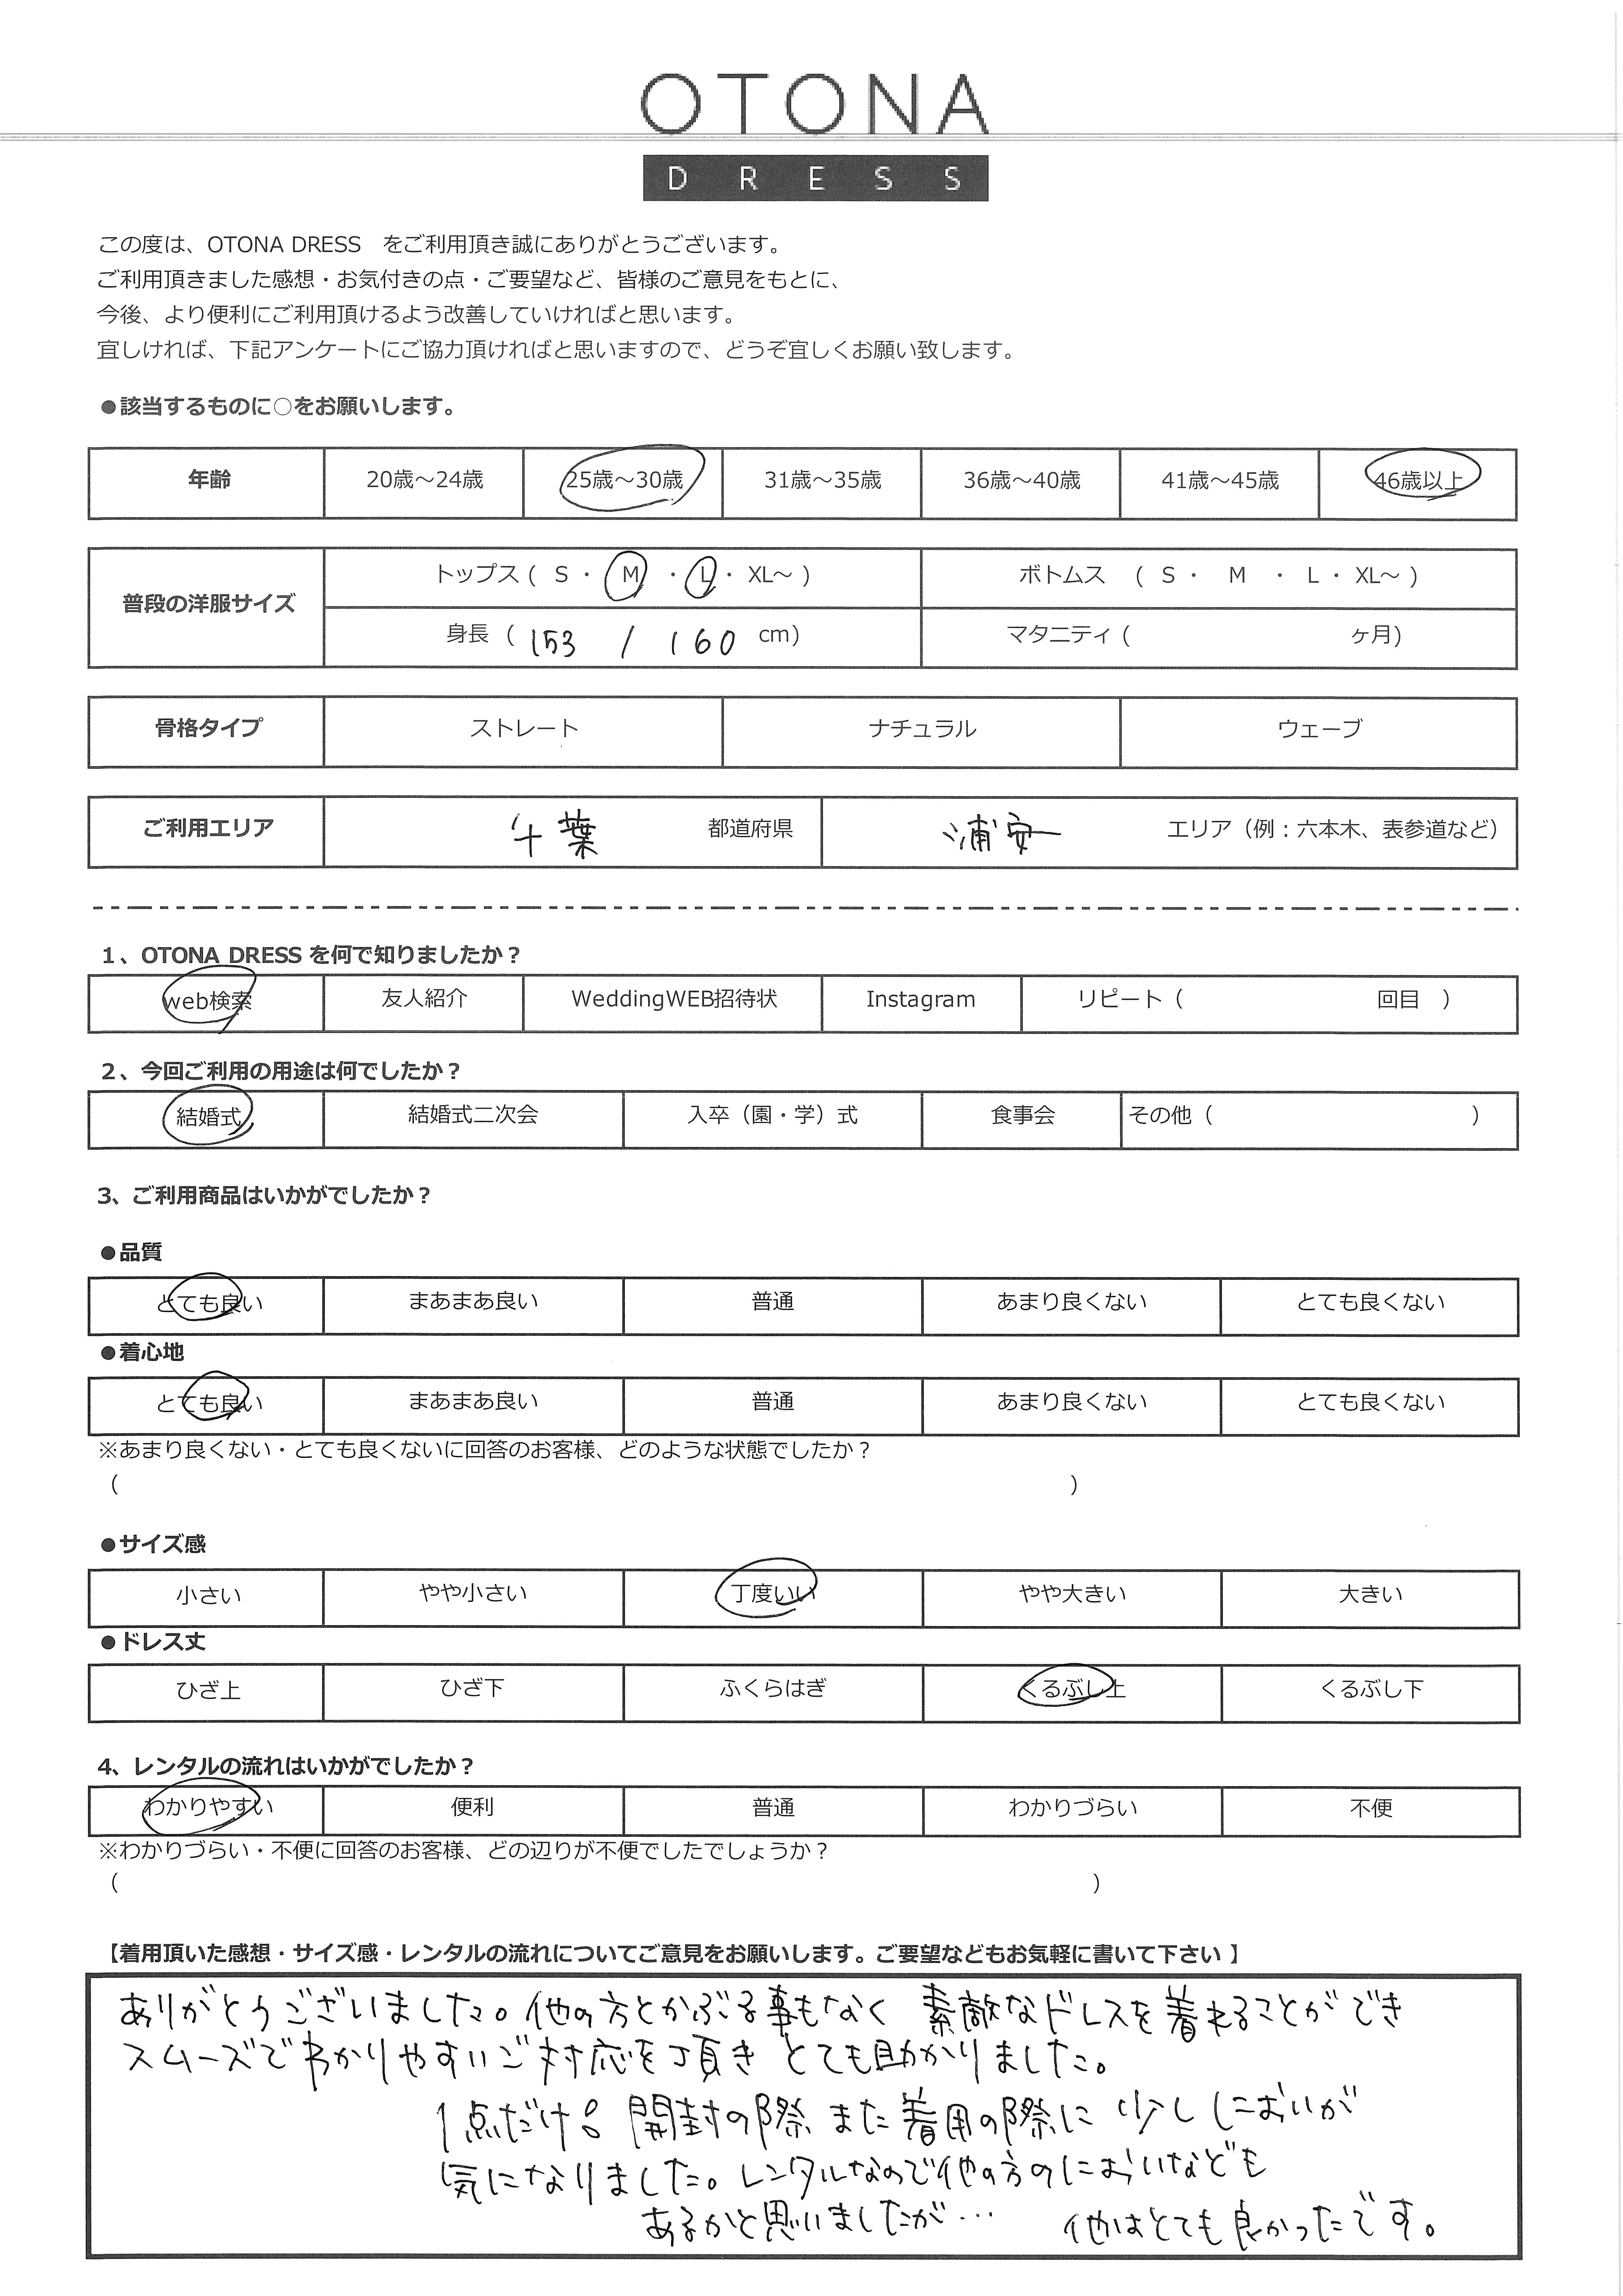 OTONA
DRESS
この度は、OTONA DRESS　をご利用頂き誠にありがとうございます。
ご利用頂きました感想・お気付きの点・ご要望など、皆様のご意見をもとに、
今後、より便利にご利用頂けるよう改善していければと思います。
宜しければ、下記アンケートにご協力頂ければと思いますので、どうぞ宜しくお願い致します。
●該当するものに○をお願いします。
年齢 20歳～24歳 25歳～30歳 31歳～35歳 36歳～40歳 41歳～45歳 46歳以上
普段の洋服サイズ
トップス ( S ・ M ・ L ・ XL～ ) ボトムス ( S ・ M ・ L ・ XL～ )
身長 ( 153 / 160 cm) マタニティ ( ヶ月)
骨格タイプ ストレート ナチュラル ウェーブ
ご利用エリア 千葉 都道府県 浦安 エリア（例：六本木、表参道など）
1、OTONA DRESS を何で知りましたか？
web検索 友人紹介 WeddingWEB招待状 Instagram リピート（ 回目 ）
2、今回ご利用の用途は何でしたか？
結婚式 結婚式二次会 入卒（園・学）式 食事会 その他（ ）
3、ご利用商品はいかがでしたか？
●品質
とても良い まあまあ良い 普通 あまり良くない とても良くない
●着心地
とても良い まあまあ良い 普通 あまり良くない とても良くない
※あまり良くない・とても良くないに回答のお客様、どのような状態でしたか？
（ ）
●サイズ感
小さい やや小さい 丁度いい やや大きい 大きい
●ドレス丈
ひざ上 ひざ下 ふくらはぎ くるぶし上 くるぶし下
4、レンタルの流れはいかがでしたか？
わかりやすい 便利 普通 わかりづらい 不便
※わかりづらい・不便に回答のお客様、どの辺りが不便でしたでしょうか？
（ ）
【着用頂いた感想・サイズ感・レンタルの流れについてご意見をお願いします。ご要望などもお気軽に書いて下さい 】
ありがとうございました。他の方とかぶる事もなく 素敵なドレスを着れることができ
スムーズでわかりやすいご対応を頂き とても助かりました。
1点だけ 開封の際また着用の際に 少しにおいが
気になりました。レンタルなので他の方のにおいなども
あるかと思いましたが… 他はとても良かったです。